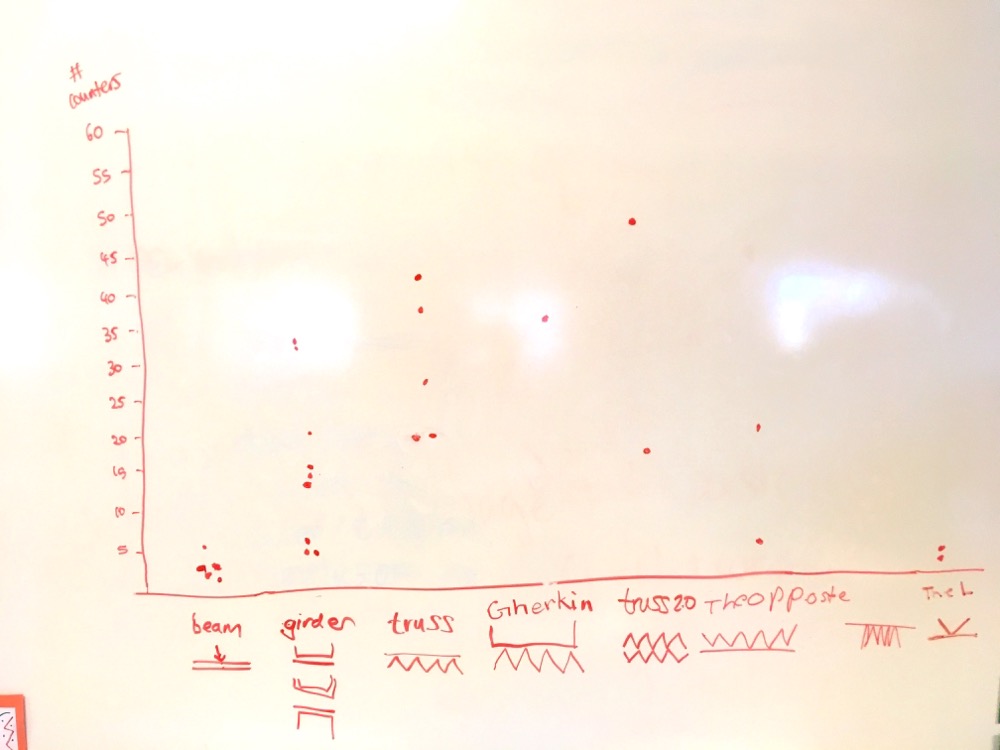 #
counters
60
55
50
45
40
35
30
25
20
15
10
5
beam
girder
truss
Gherkin
truss 2.0
The Opposite
The L